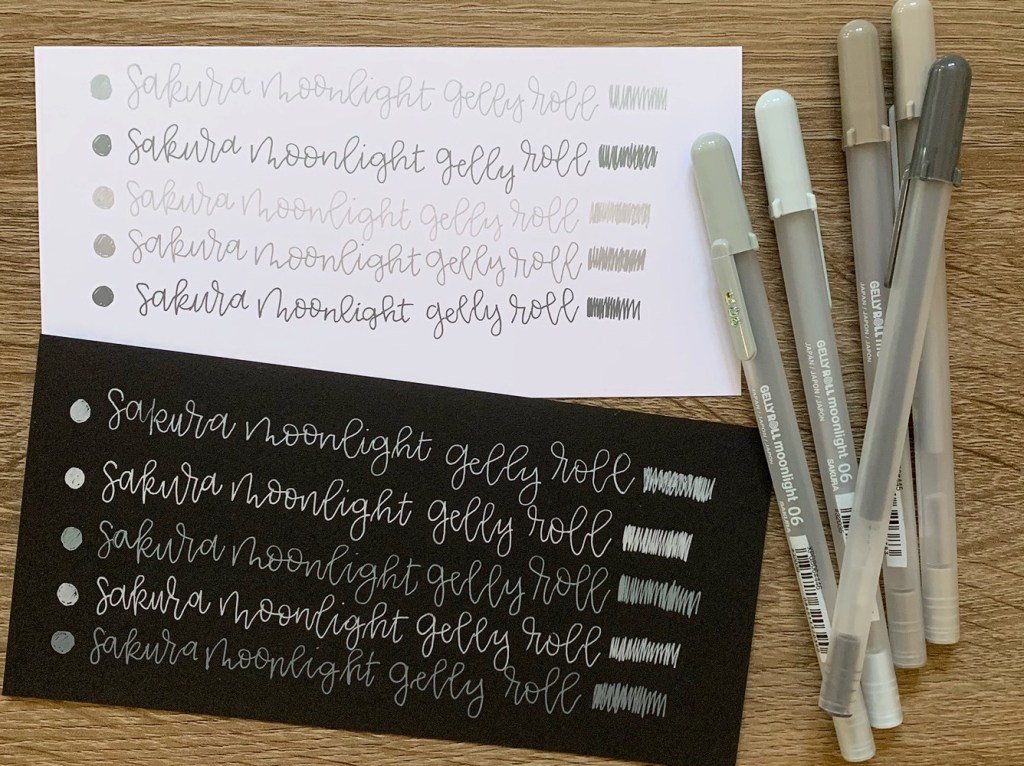 Sakura moonlight gelly roll
Sakura moonlight gelly roll
Sakura moonlight gelly roll
Sakura moonlight gelly roll
Sakura moonlight gelly roll
Sakura moonlight gelly roll
Sakura moonlight gelly roll
Sakura moonlight gelly roll
Sakura moonlight gelly roll
Sakura moonlight gelly roll
GELLY ROLL moonlight 06
JAPAN / JAPON / JAPON
GELLY ROLL moonlight 06
JAPAN / JAPON / JAPON
SAKURA
GELLY ROLL
JAPAN / JAPON / JAPON